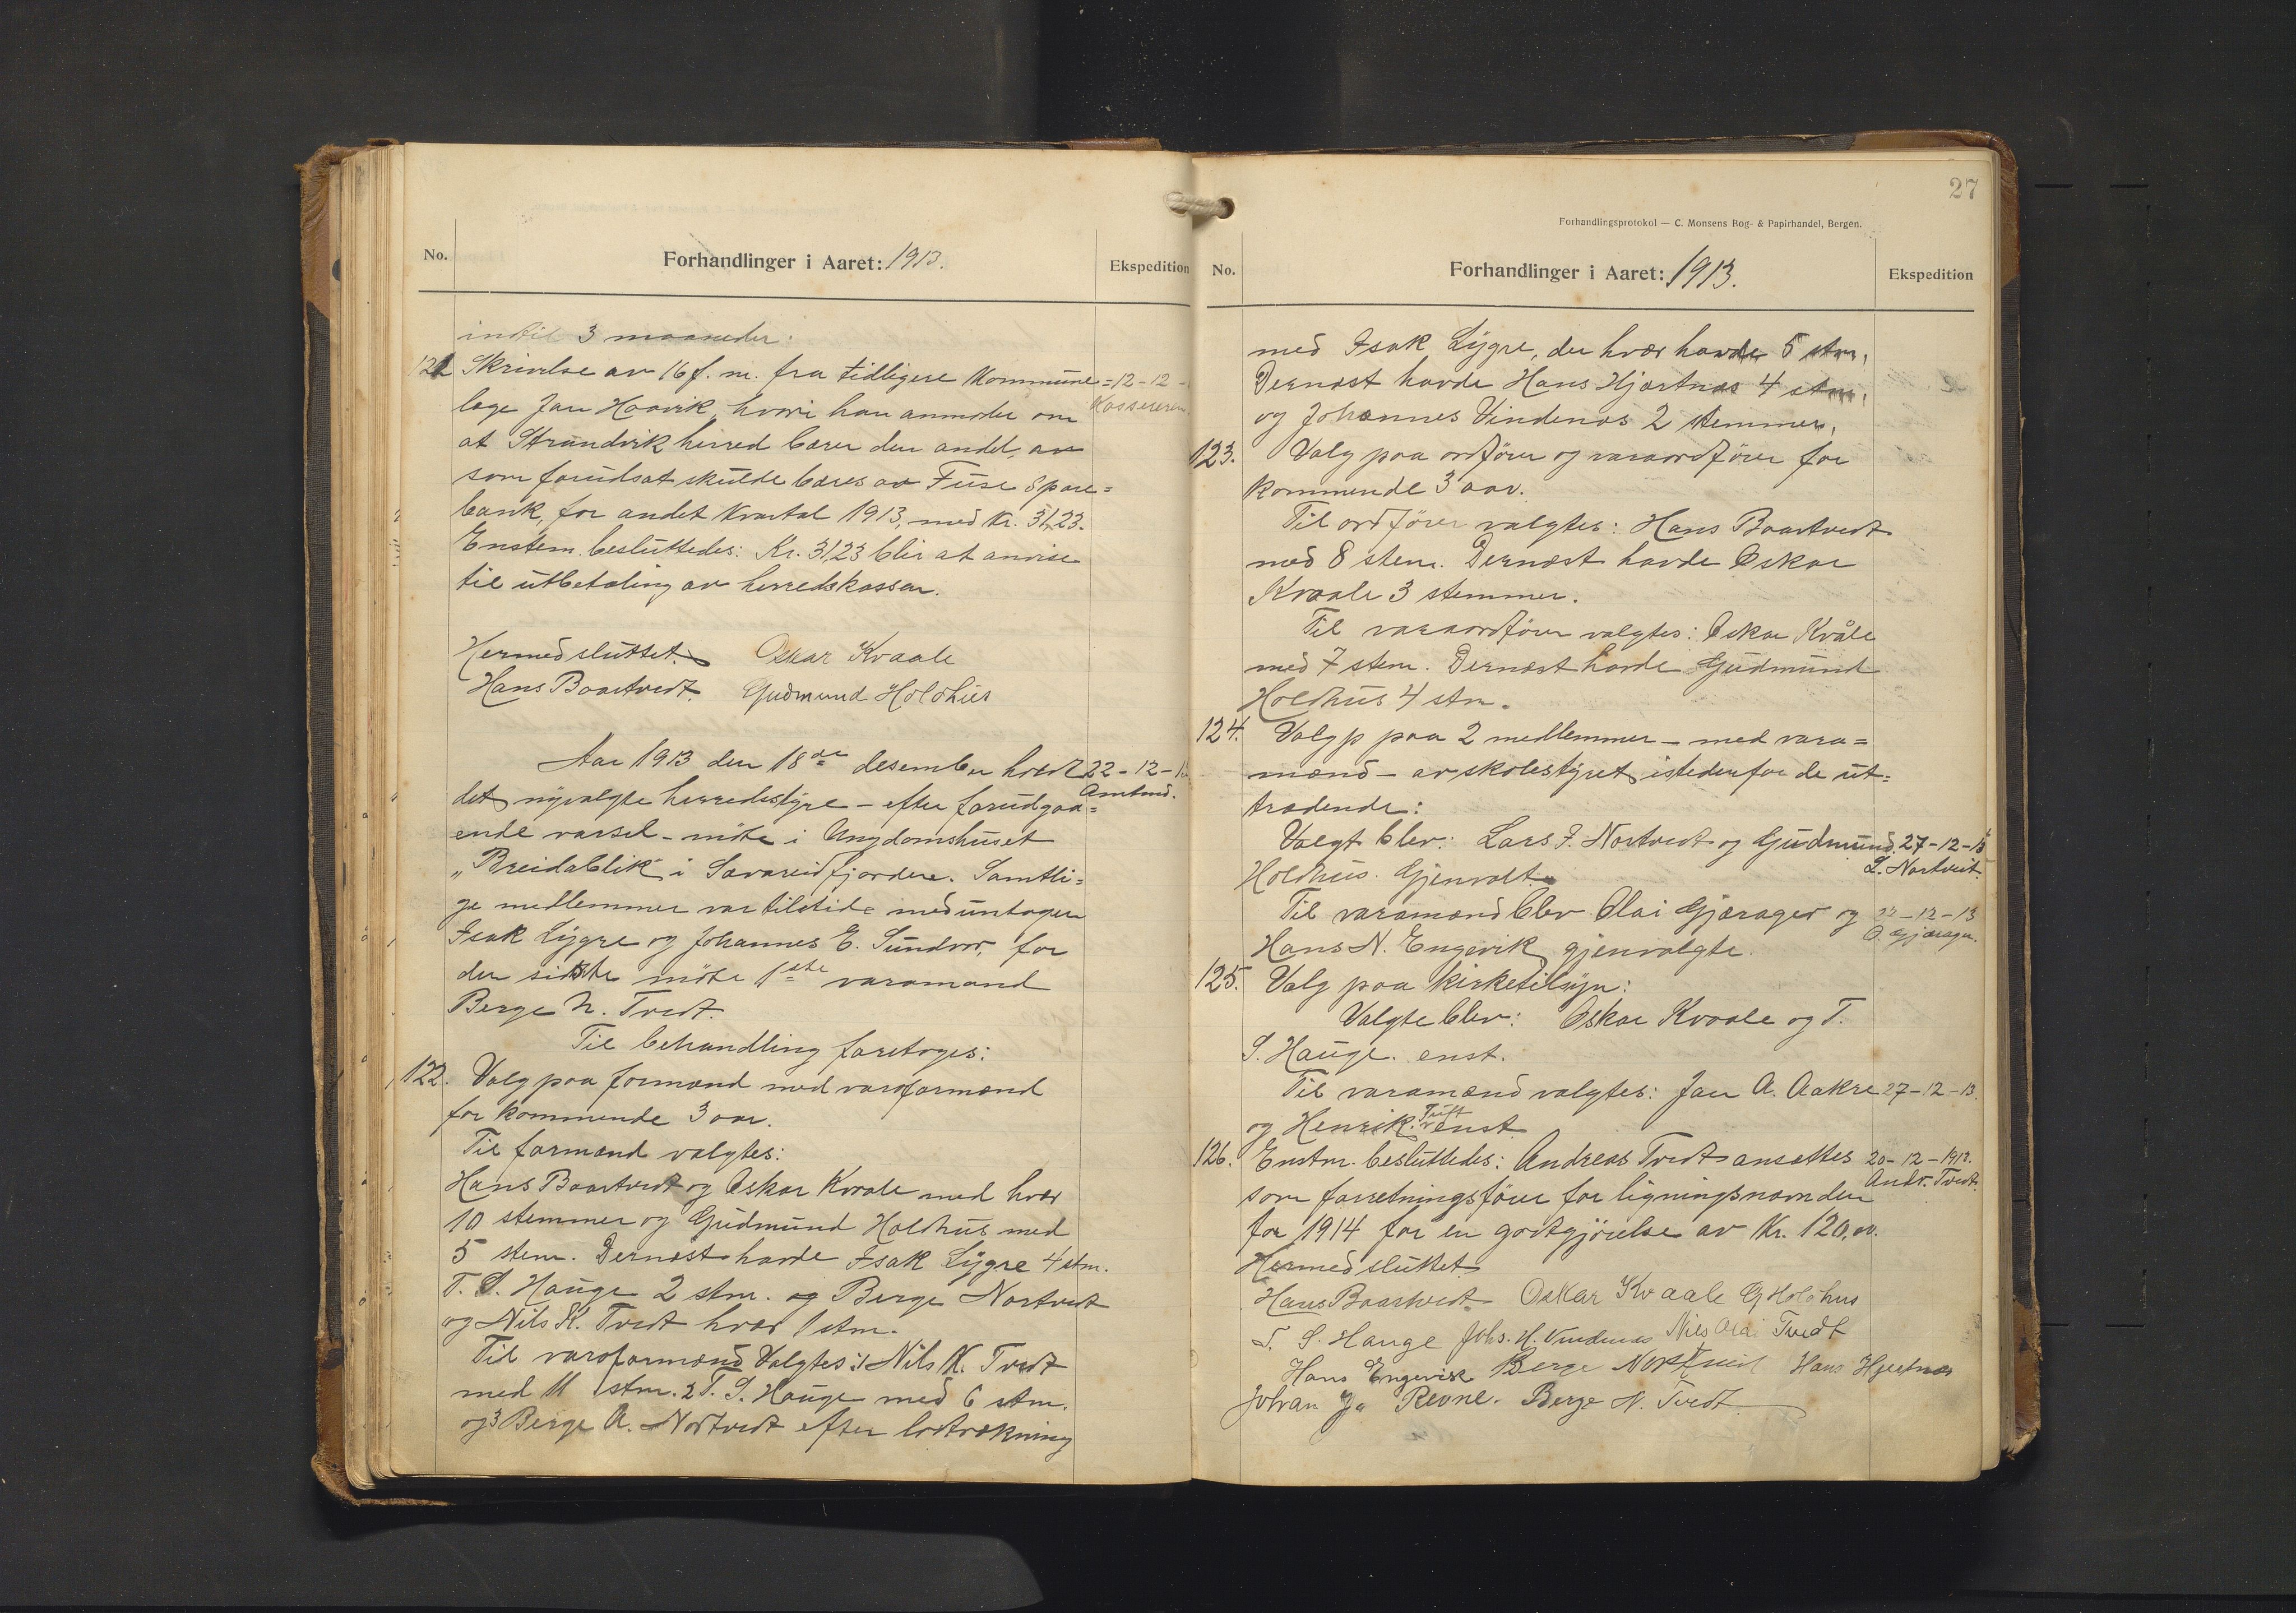 No.
Forhandlinger i Aaret: 1913.
Ekspedition
indtil 3 maaneder.
121 Skrivelse av 16 f. m. fra tidligere Kommune= 12-12-
læge Jan Haavik, hvori han anmoder om Kassereren
at Strandvik herred bærer den andel, av
som forudsat skulde bæres av Fuse Spare=
bank, for andet kvartal 1913, med kr. 31,23.
Enstem. besluttedes: Kr. 31,23 blir at anvise
til utbetaling av herredskassen.
Hermed sluttet. Oskar Kvaale
Hans Baartvedt. Gudmund Holdhus
Aar 1913 den 18de desember holdt 22-12-13
det nyvalgte herredsstyre - efter forudgaa= Amtmd.
ende varsel - möte i Ungdomshuset
„Breidablik" i Sævareidfjorden. Samtli=
ge medlemmer var tilstede med untagen
Isak Lygre og Johannes E. Sundvor, for
den sidste möte 1ste varamand
Berge N. Tvedt.
Til behandling foretoges:
122. Valg paa formænd med varaformænd
for kommende 3 aar.
Til formænd valgtes:
Hans Baartvedt og Oskar Kvaale med hver
10 stemmer og Gudmund Holdhus med
5 stem. Dernæst havde Isak Lygre 4 stm.
T. S. Hauge 2 stm. og Berge Nortvedt
og Nils K. Tvedt hver 1 stm.
Til varaformænd Valgtes: 1 Nils K. Tvedt
med 11 stm. 2 T. S. Hauge med 6 stm.
og 3 Berge A. Nortvedt efter lodtrækning
27
Forhandlingsprotokol — C. Monsens Bog- & Papirhandel, Bergen.
No.
Forhandlinger i Aaret: 1913.
Ekspedition
med Isak Lygre, der hver havde 5 stm.
Dernæst havde Hans Hjartnæs 4 stm.
og Johannes Vindenes 2 stemmer.
123. Valg paa ordförer og varaordförer for
kommende 3 aar.
Til ordförer valgtes: Hans Baartvedt
med 8 stem. Dernæst havde Oskar
Kvaale 3 stemmer.
Til varaordförer valgtes: Oskar Kvåle
med 7 stem. Dernæst havde Gudmund
Holdhus 4 stm.
124. Valg p paa 2 medlemmer - med vara=
mænd - av skolestyret istedenfor de ut=
trædende:
Valgt blev: Lars J. Nortvedt og Gudmund 27-12-13
Holdhus. Gjenvalt. L. Nortveit.
Til varamænd blev Olai Gjærager og 27-12-13
Hans N. Engevik gjenvalgte. O. Gjærager.
125. Valg paa kirketilsyn:
Valgte blev: Oskar Kvaale og T.
S. Hauge. enst.
Til varamænd valgtes: Jan A. Aakre 27-12-13.
og Henrik Tuft enst.
126. Enstm. besluttedes: Andreas Tvedt ansættes 20-12-1913.
som forretningsförer for ligningsnævnden Andr. Tvedt.
for 1914 for en godtgjörelse av Kr. 120,00.
Hermed sluttet
Hans Baartvedt. Oskar Kvaale G Holdhus
T. S. Hauge Johs. H. Vindenes Nils Olai Tvedt
Hans Engevik Berge Nortveit Hans Hjertnæs
Johan J. Revne. Berge N. Tvedt